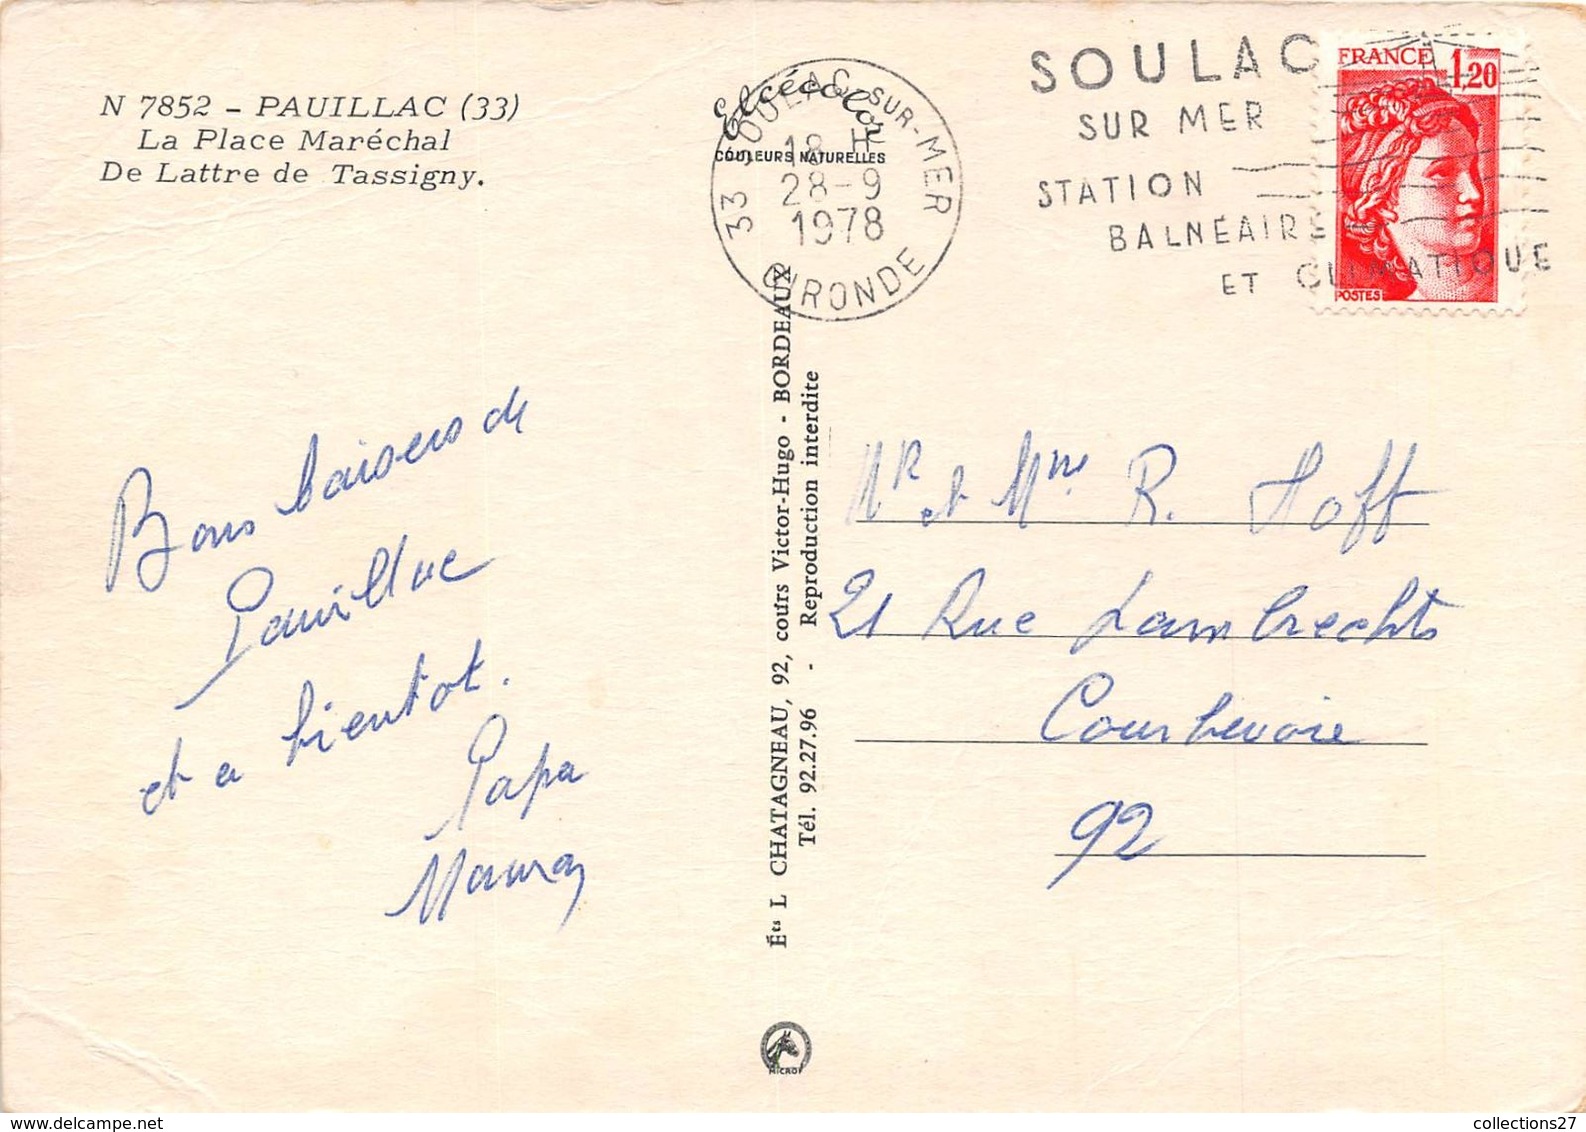 N 7852 - PAUILLAC (33)
La Place Maréchal
De Lattre de Tassigny.
Bons baisers de
Pauillac
et a bientot.
Papa
Elcécolor
COULEURS NATURELLES
33 SOULAC-SUR-MER
18 H
28-9
1978
GIRONDE
SOULAC
SUR MER
STATION
BALNEAIRE
ET CLIMATIQUE
FRANCE 1,20
POSTES
Éts L CHATAGNEAU, 92, cours Victor-Hugo - BORDEAUX
Tél. 92.27.96 - Reproduction interdite
MR et Mme R. Hoff
21 Rue Lambrechts
Courbevoie
92
collections27